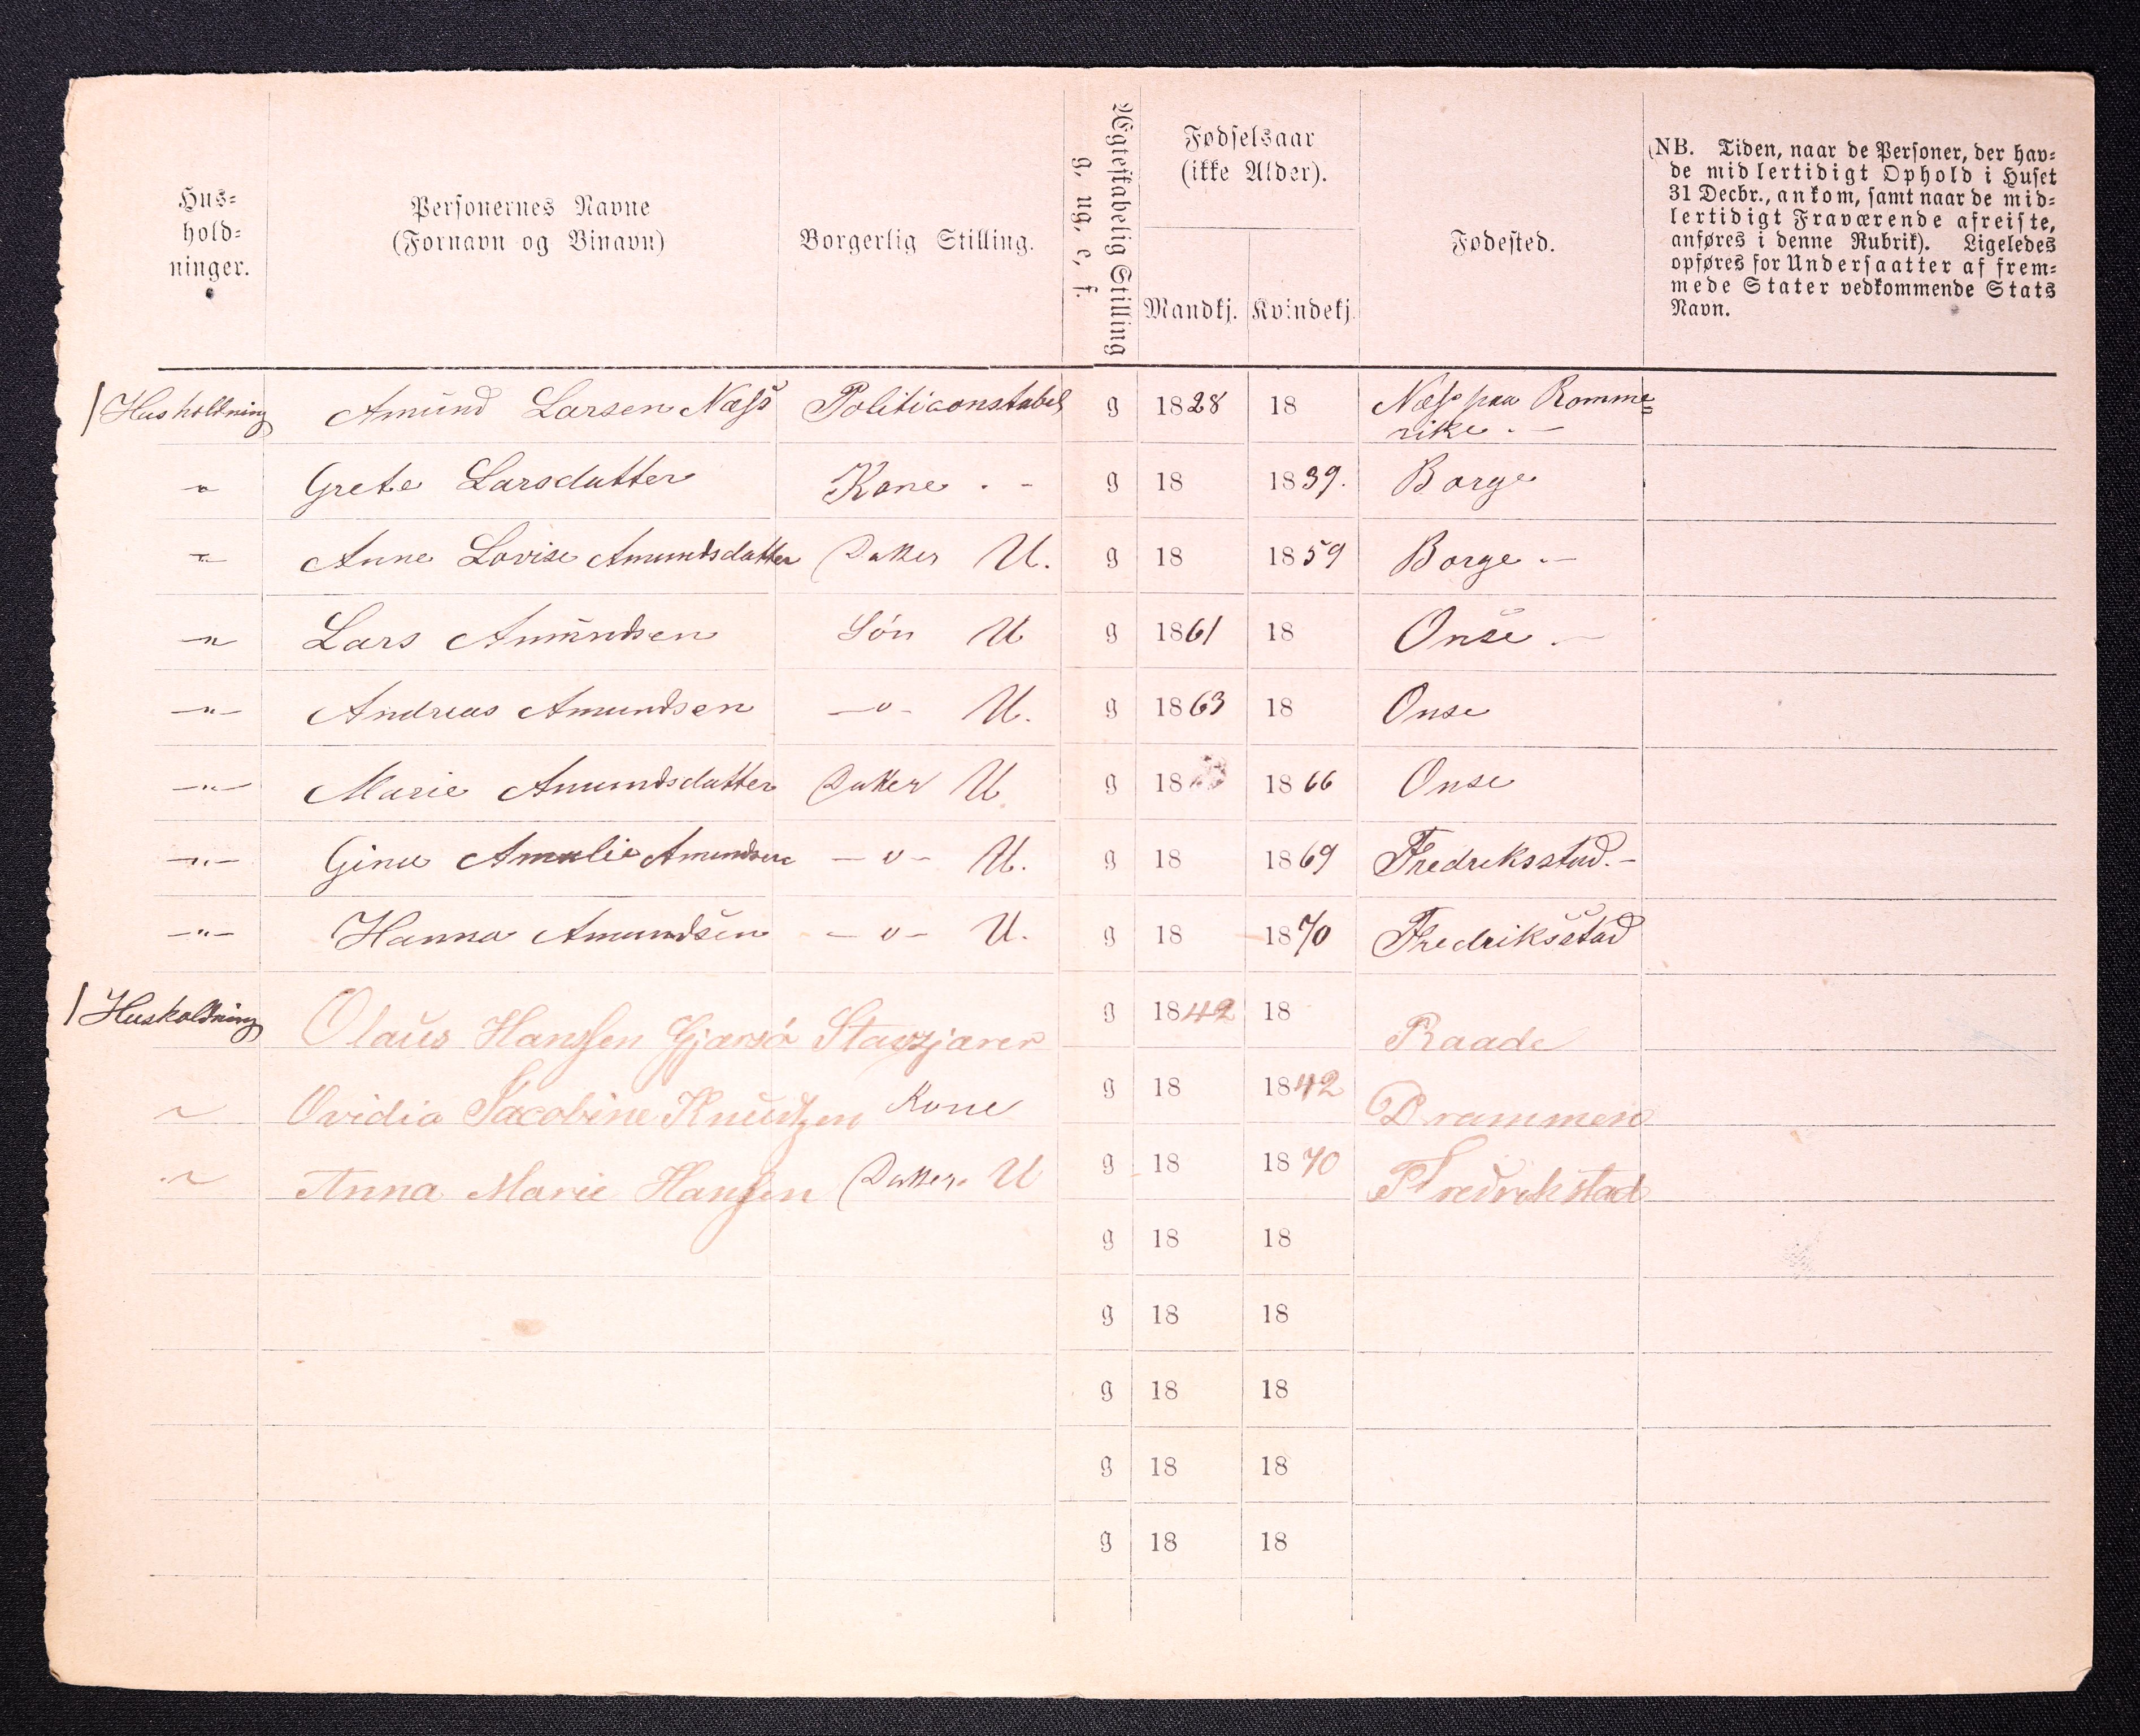 Hus-
hold-
ninger.
Personernes Navne
(Fornavn og Binavn)
Borgerlig Stilling.
Ægteskabelig Stilling
g, ug, e, f.
Fødselsaar
(ikke Alder).
Mandkj. Kvindekj.
Fødested.
(NB. Tiden, naar de Personer, der hav-
de midlertidigt Ophold i Huset
31 Decbr., ankom, samt naar de mid-
lertidigt Fraværende afreiste,
anføres i denne Rubrik). Ligeledes
opføres for Undersaatter af frem-
mede Stater vedkommende Stats
Navn.
1 Husholdning Amund Larsen Næss Politiconstabel g 1828 18 Næss paa Romme=
rike . —
" Grete Larsdatter Kone . - g 18 1839. Borge
" Anne Lovise Amundsdatter Datter U. g 18 1859 Borge . —
" Lars Amundsen Søn U g 1861 18 Onse . —
—"— Andreas Amundsen —"- U. g 1863 18 Onse
—"— Marie Amundsdatter Datter U g 18 1866 Onse
—"— Gina Amalie Amundsen —"- U. g 18 1869 Fredriksstad. -
—"— Hanna Amundsen —"- U. g 18 1870 Fredriksstad
1 Husholdning Olaus Hanssen Gjærsö g 1842 18 Raade
" Ovidia Jacobine Knudtzen Kone g 18 1842 Drammen
" Anna Marie Hanssen Datter. U g 18 1870 Fredrikstad
g 18 18
g 18 18
g 18 18
g 18 18
g 18 18